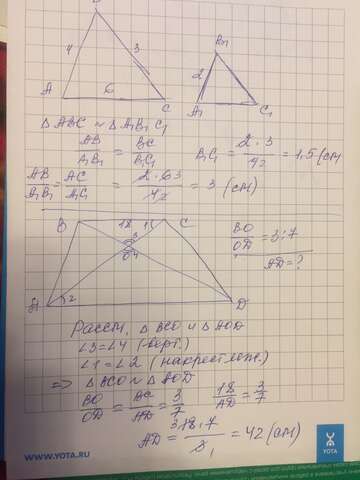 B
4 3 2
A 6 C
B₁
A₁ C₁
△ABC ~ △A₁B₁C₁
AB/A₁B₁ = BC/B₁C₁ B₁C₁ = 2·3/42 = 1,5 (см
AB/A₁B₁ = AC/A₁C₁ = 2·63/42 = 3 (см)
B 18 1 C
3
O4
A 2 D
BO/OD = 3:7
AD = ?
Рассм. △BCO и △AOD
∠3=∠4 (верт.)
∠1=∠2 (накрест леж.)
=> △BCO ~ △AOD
BO/OD = BC/AD = 3/7 18/AD = 3/7
AD = 18·7/3 = 42 (см)
WWW.YOTA.RU
YOTA
WWW.YOTA.RU